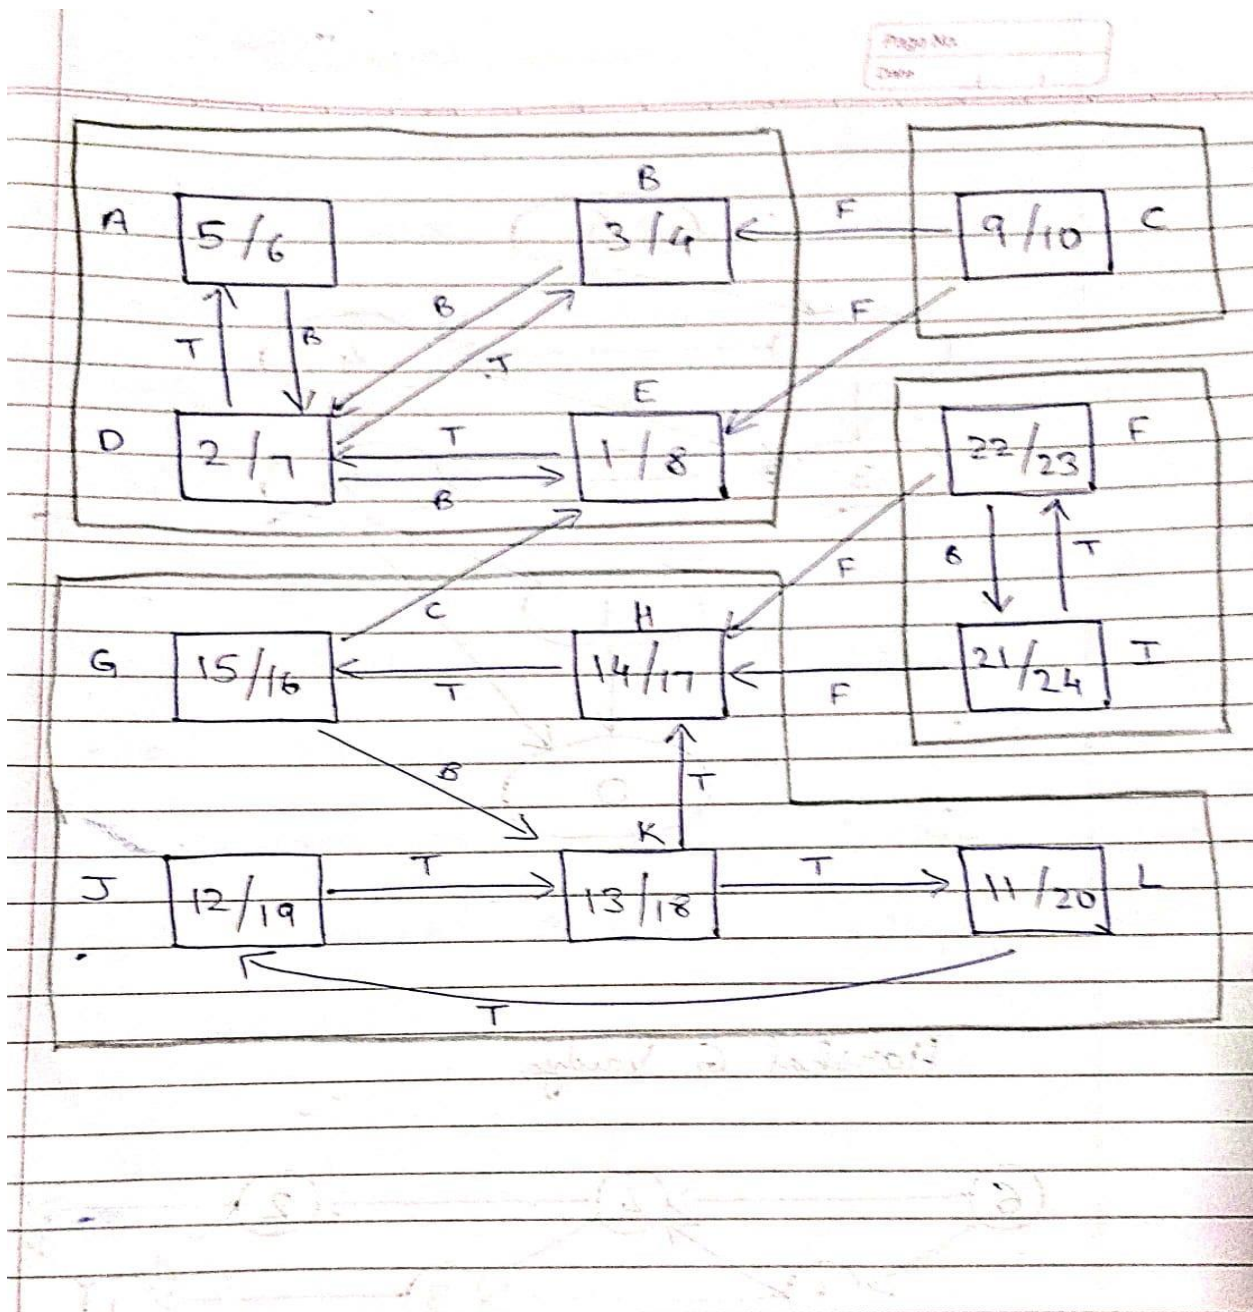 Page No.
Date
B
A 5/6 3/4 F 9/10 C
B F
T B T
E
D 2/7 T 1/8 22/23 F
B
B T
C F
H
G 15/16 T 14/17 F 21/24 I
B T
K
J 12/19 T 13/18 T 11/20 L
T